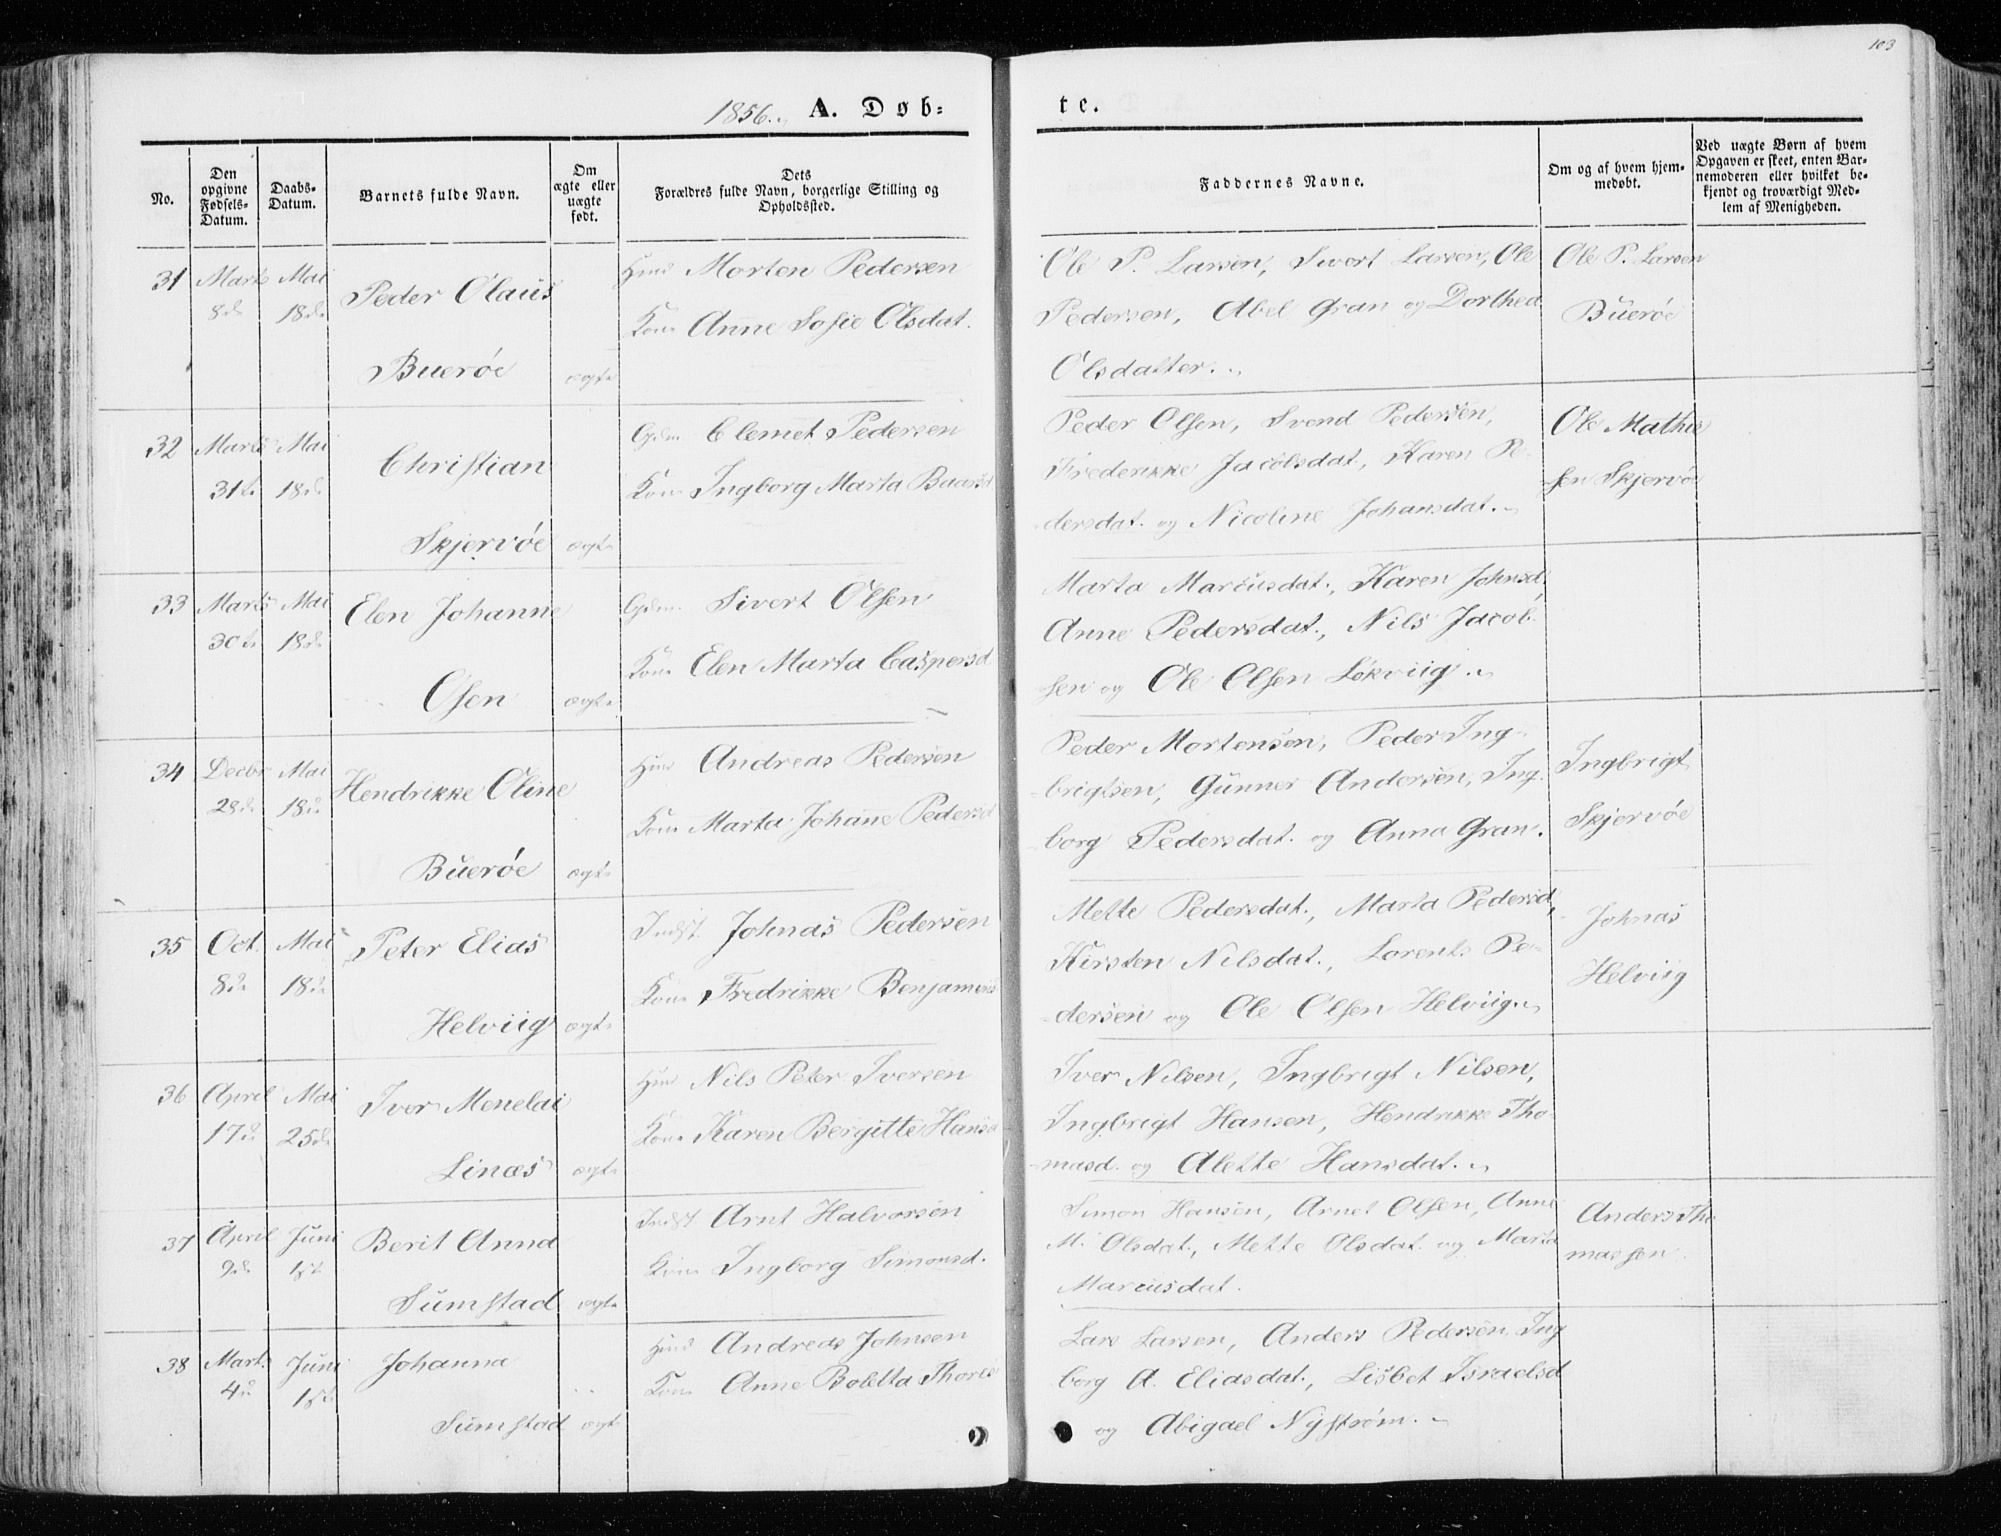 103
1856. A. Døb=
te.
No.
Den opgivne Fødsels-Datum.
Daabs-Datum.
Barnets fulde Navn.
Om ægte eller uægte født.
Dets Forældres fulde Navn, borgerlige Stilling og Opholdssted.
Faddernes Navne.
Om og af hvem hjem-medøbt.
Ved uægte Børn af hvem Opgaven er skeet, enten Bar-nemoderen eller hvilket be-kjendt og troværdigt Med-lem af Menigheden.
31 Marts 8de Mai 18de Peder Olaus
Buerøe ægte
Huus Morten Pedersen
Kone Anne Sofie Olsdat.
Ole P. Larsen, Sivert Larsen, Ole
Pedersen, Abel Gran og Dorthea
Olsdatter.
Ole P. Larsen
Buerøe
32 Marts 31te Mai 18de Christian
Skjervøe ægte
Gdm. Clemet Pedersen
Kone Ingborg Marta Baarsd
Peder Olsen, Svend Pedersen,
Frederikke Jacobsdat, Karen Pe-
dersdat. og Nicoline Johansdat.
Ole Mathis
sen Skjervøe
33 Marts 30te Mai 18de Elen Johanne
Osen ægte
Gdm. Sivert Olsen
Kone Elen Marta Caspersd
Marta Marcusdat., Karen Johnsd,
Anne Pedersdat., Nils Jacob-
sen og Ole Olsen Løkviig.
34 Decbr 28de Mai 18de Hendrikke Oline
Buerøe ægte
Huus Andreas Pedersen
Kone Marta Johanne Pedersd
Peder Mortensen, Peder Ing-
brigtsen, Gunner Andersen, Ing-
borg Pedersdat. og Anna Gran.
Ingbrigt
Skjervøe
35 Oct. 8de Mai 18de Peter Elias
Helviig ægte
Indst. Johnas Pedersen
Kone Fredrikke Benjamens
Mette Pedersdat., Marta Pedersd,
Kirsten Nilsdat., Lorents Pe-
dersen og Ole Olsen Helviig.
Johnas
Helviig
36 April 17de Mai 25de Iver Menelai
Linæs ægte
Huus Nils Peter Iversen
Kone Karen Bergitte Hansd
Iver Nilsen, Ingbrigt Nilsen,
Ingbrigt Hansen, Hendrikke Tho-
masd. og Alette Hansdat.
37 April 9de Juni 1ste Berit Anna
Sumstad ægte
Indst Arnt Halvorsen
Kone Ingborg Simonsd.
Simon Hansen, Arnet Olsen, Anne
M. Olsdat., Mette Olsdat. og Marta
Marcusdat.
Anders Tho
massen
38 Marts 4de Juni 1ste Johanna
Sumstad ægte
Huus Andreas Johnsen
Kone Anne Boletta Thores
Lars Larsen, Anders Pedersen, Ing
borg A. Eliasdat., Lisbet Israelsd
og Abigael Nystrøm.